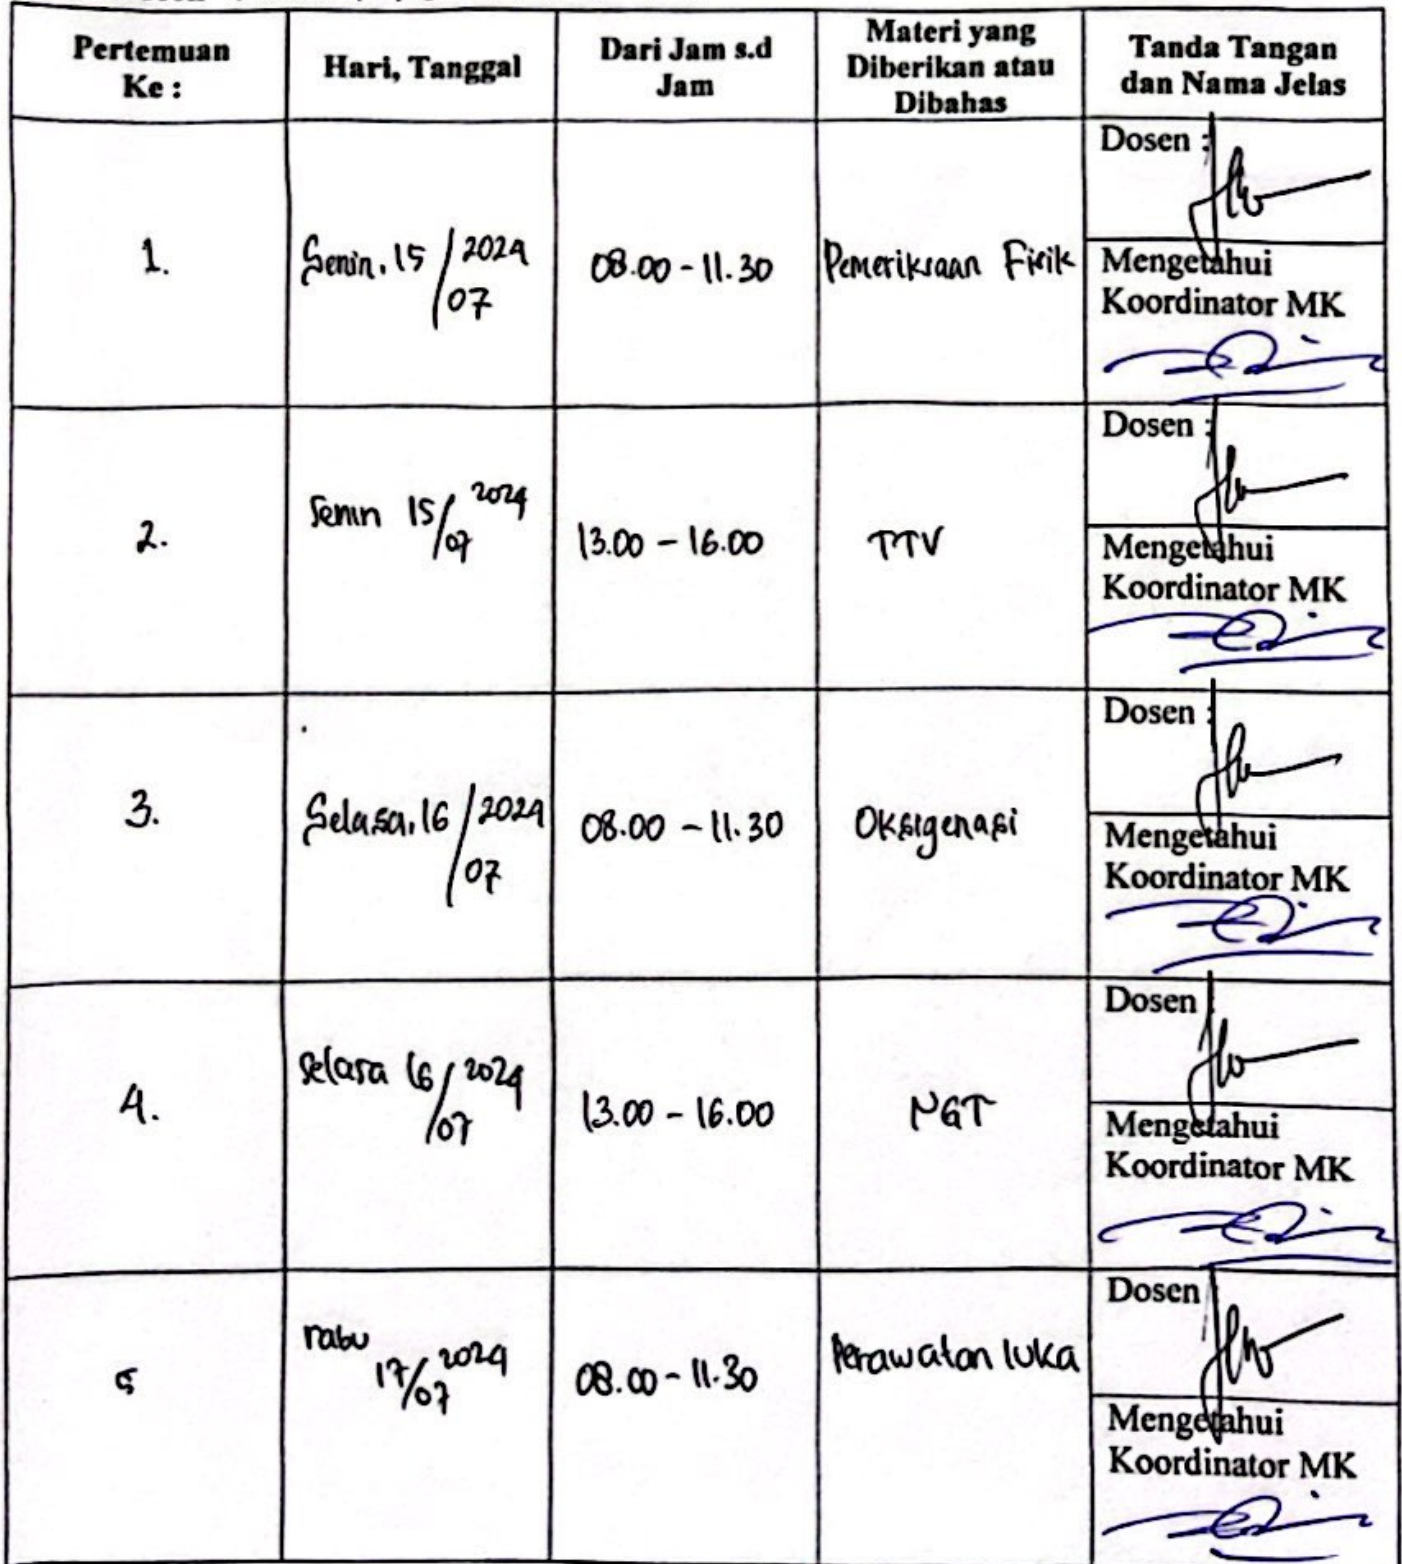 Pertemuan
Ke :
Hari, Tanggal
Dari Jam s.d
Jam
Materi yang
Diberikan atau
Dibahas
Tanda Tangan
dan Nama Jelas
1.
Senin, 15/07 2024
08.00 - 11.30
Pemeriksaan Fisik
Dosen :
Mengetahui
Koordinator MK
2.
Senin 15/07 2024
13.00 - 16.00
TTV
Dosen :
Mengetahui
Koordinator MK
3.
Selasa, 16/07 2024
08.00 - 11.30
Oksigenasi
Dosen :
Mengetahui
Koordinator MK
4.
Selasa 16/07 2024
13.00 - 16.00
NGT
Dosen :
Mengetahui
Koordinator MK
5
rabu
17/07 2024
08.00 - 11.30
Perawatan luka
Dosen
Mengetahui
Koordinator MK